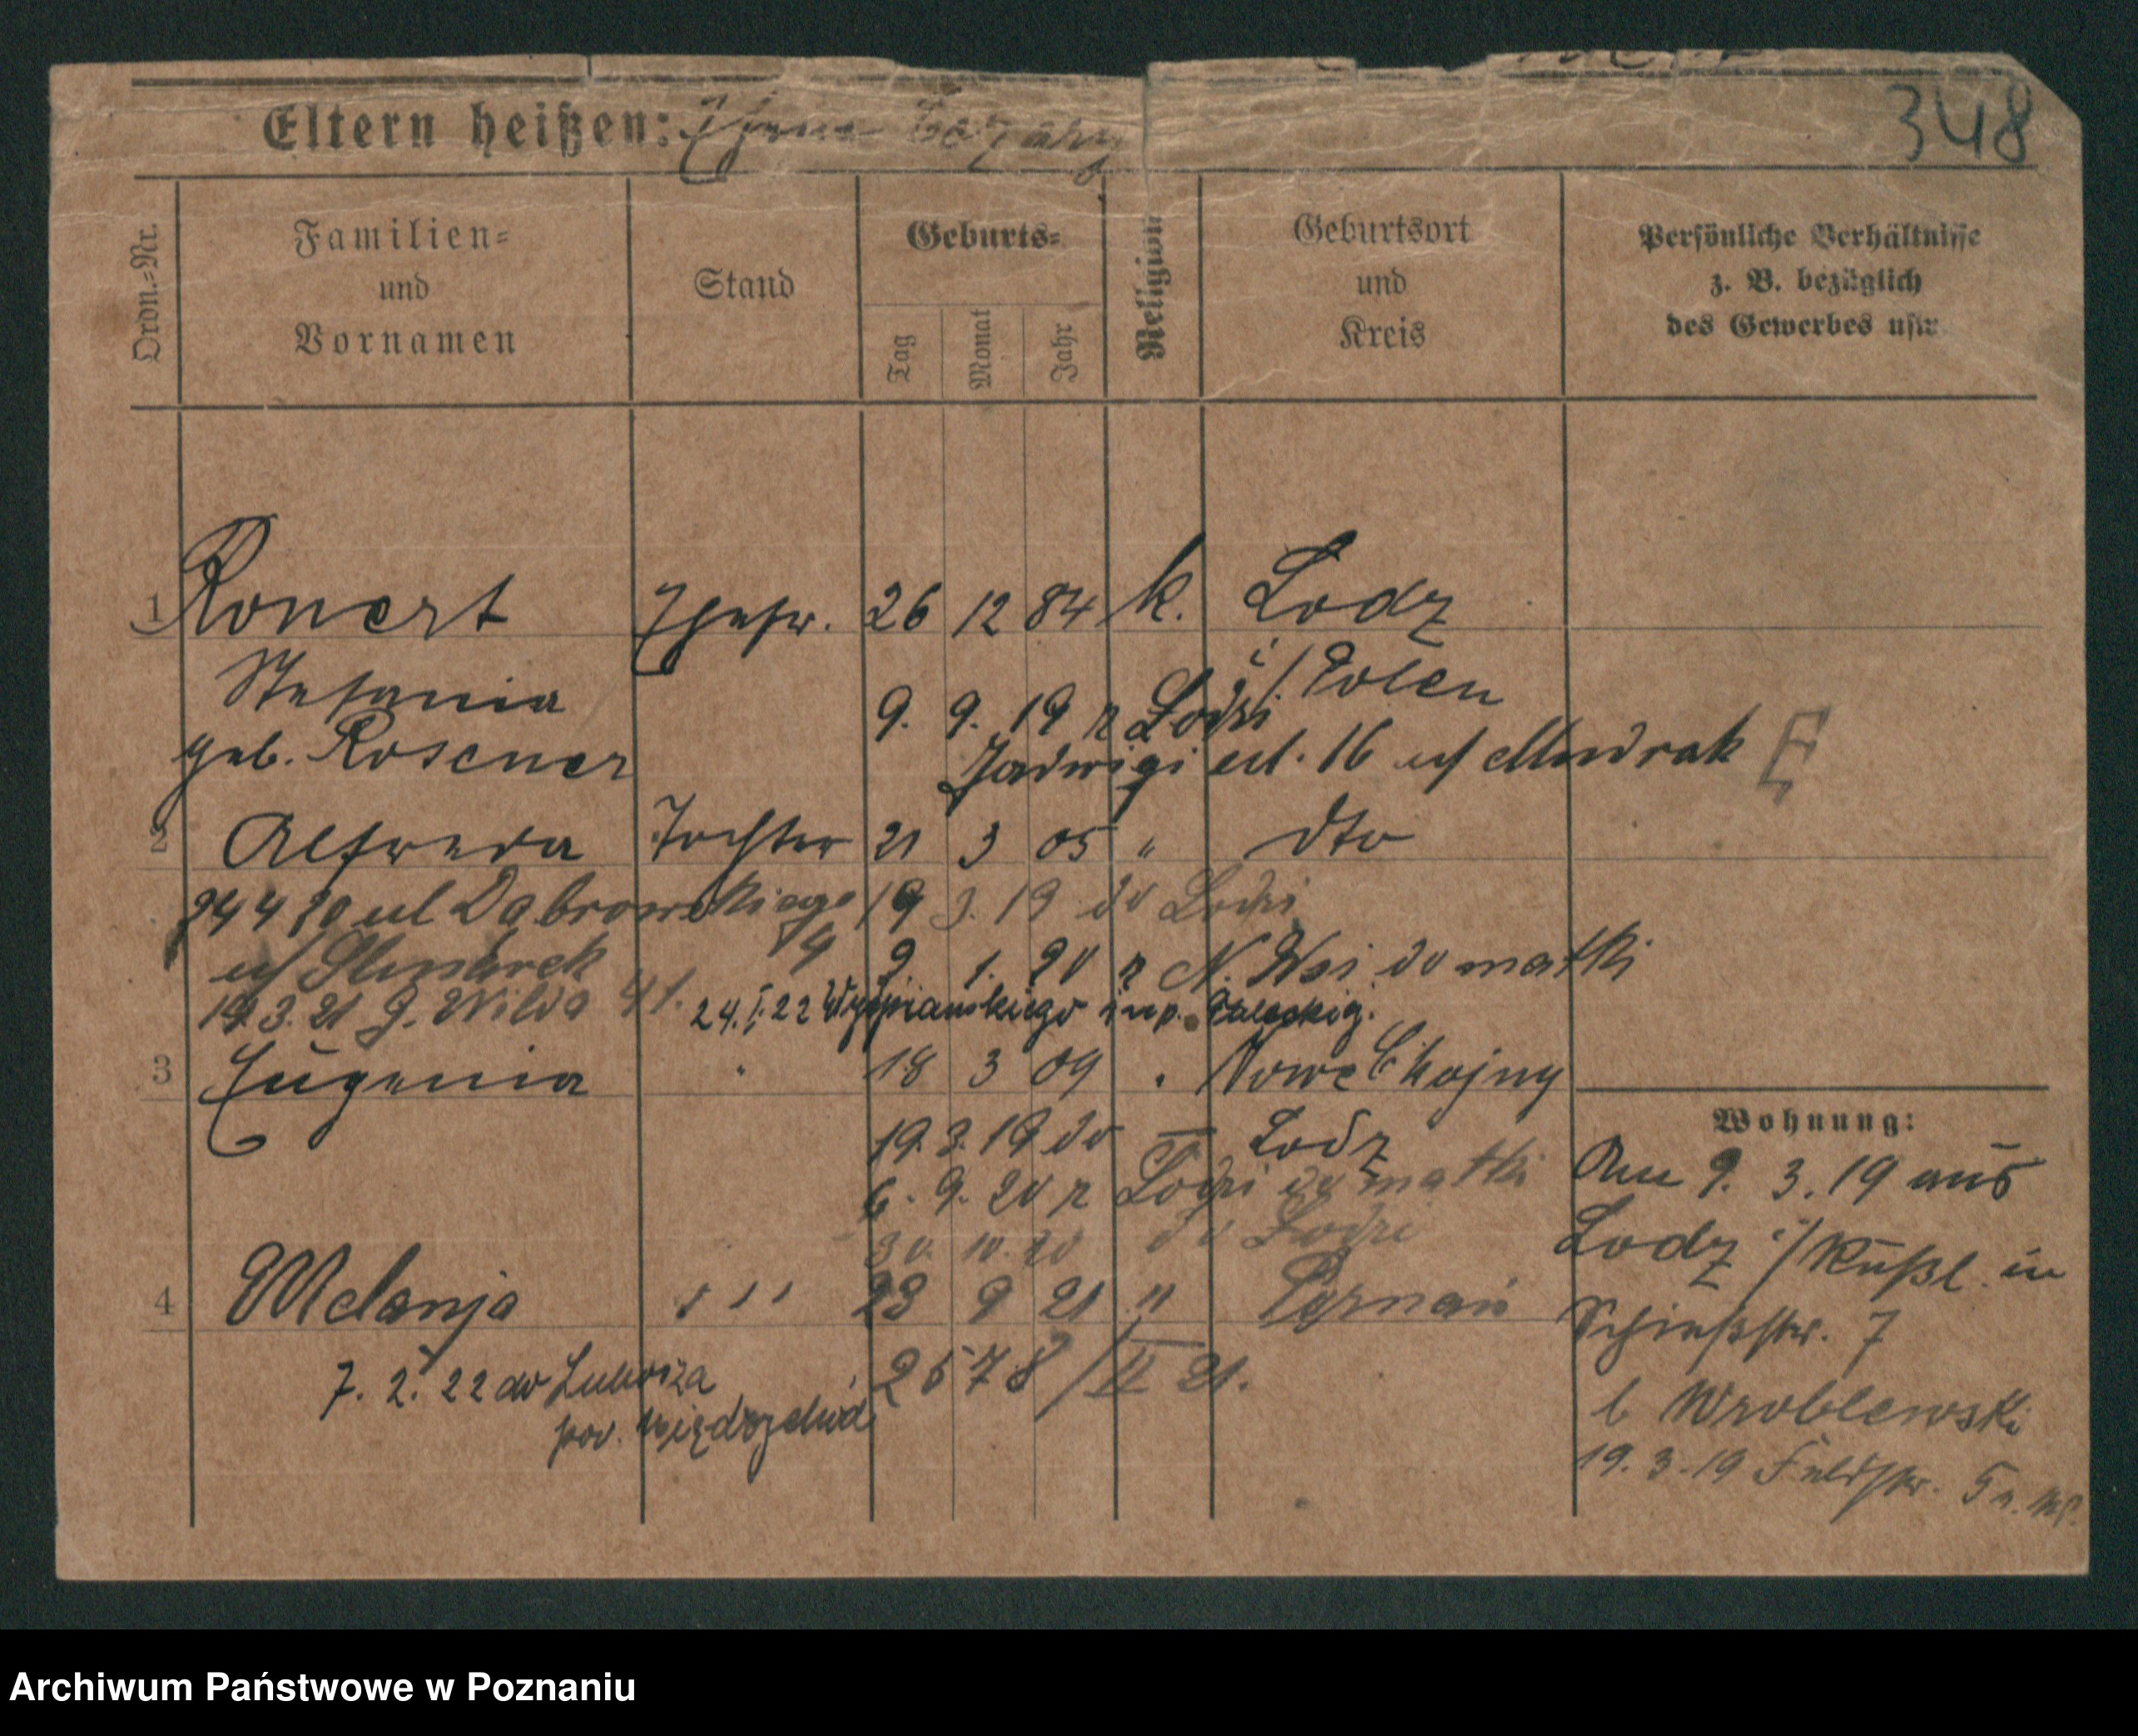 348
Eltern heißen:
Ordn.-Nr.
Familien-
und
Vornamen
Stand
Geburts-
Tag
Monat
Jahr
Religion
Geburtsort
und
Kreis
Persönliche Verhältnisse
z. B. bezüglich
des Gewerbes usw.
1 Ronert 26 12 84 k. Lodz
Stefania i/Polen
9. 9. 19 z Lodzi
geb. Rosener Jadwigi ul. 16 Mudrak
2 Alfreda Tochter 21 3 05 " dto
24 4 20 ul Dabrowskiego 19 3. 19 do Lodzi
9. 1. 20 z N. Wsi do matki
19.3.21 G. Wilda 41. 24.I.22 Wyspiańskiego
3 Eugenia " 18 3 09 " Nowe Chojny
19. 3. 19 do — Lodz
6. 9. 20 z Lodzi do matki
30. 10. 20 do Lodzi
4 Melanja 23 9 21 " Poznań
2578/II 21.
7. 2. 22 do
pow. Międzychód
Wohnung:
Am 9. 3. 19 aus
Lodz i/Rußl. in
Schießstr. 7
b Wroblewski
19. 3. 19 Feldstr. 5
Archiwum Państwowe w Poznaniu